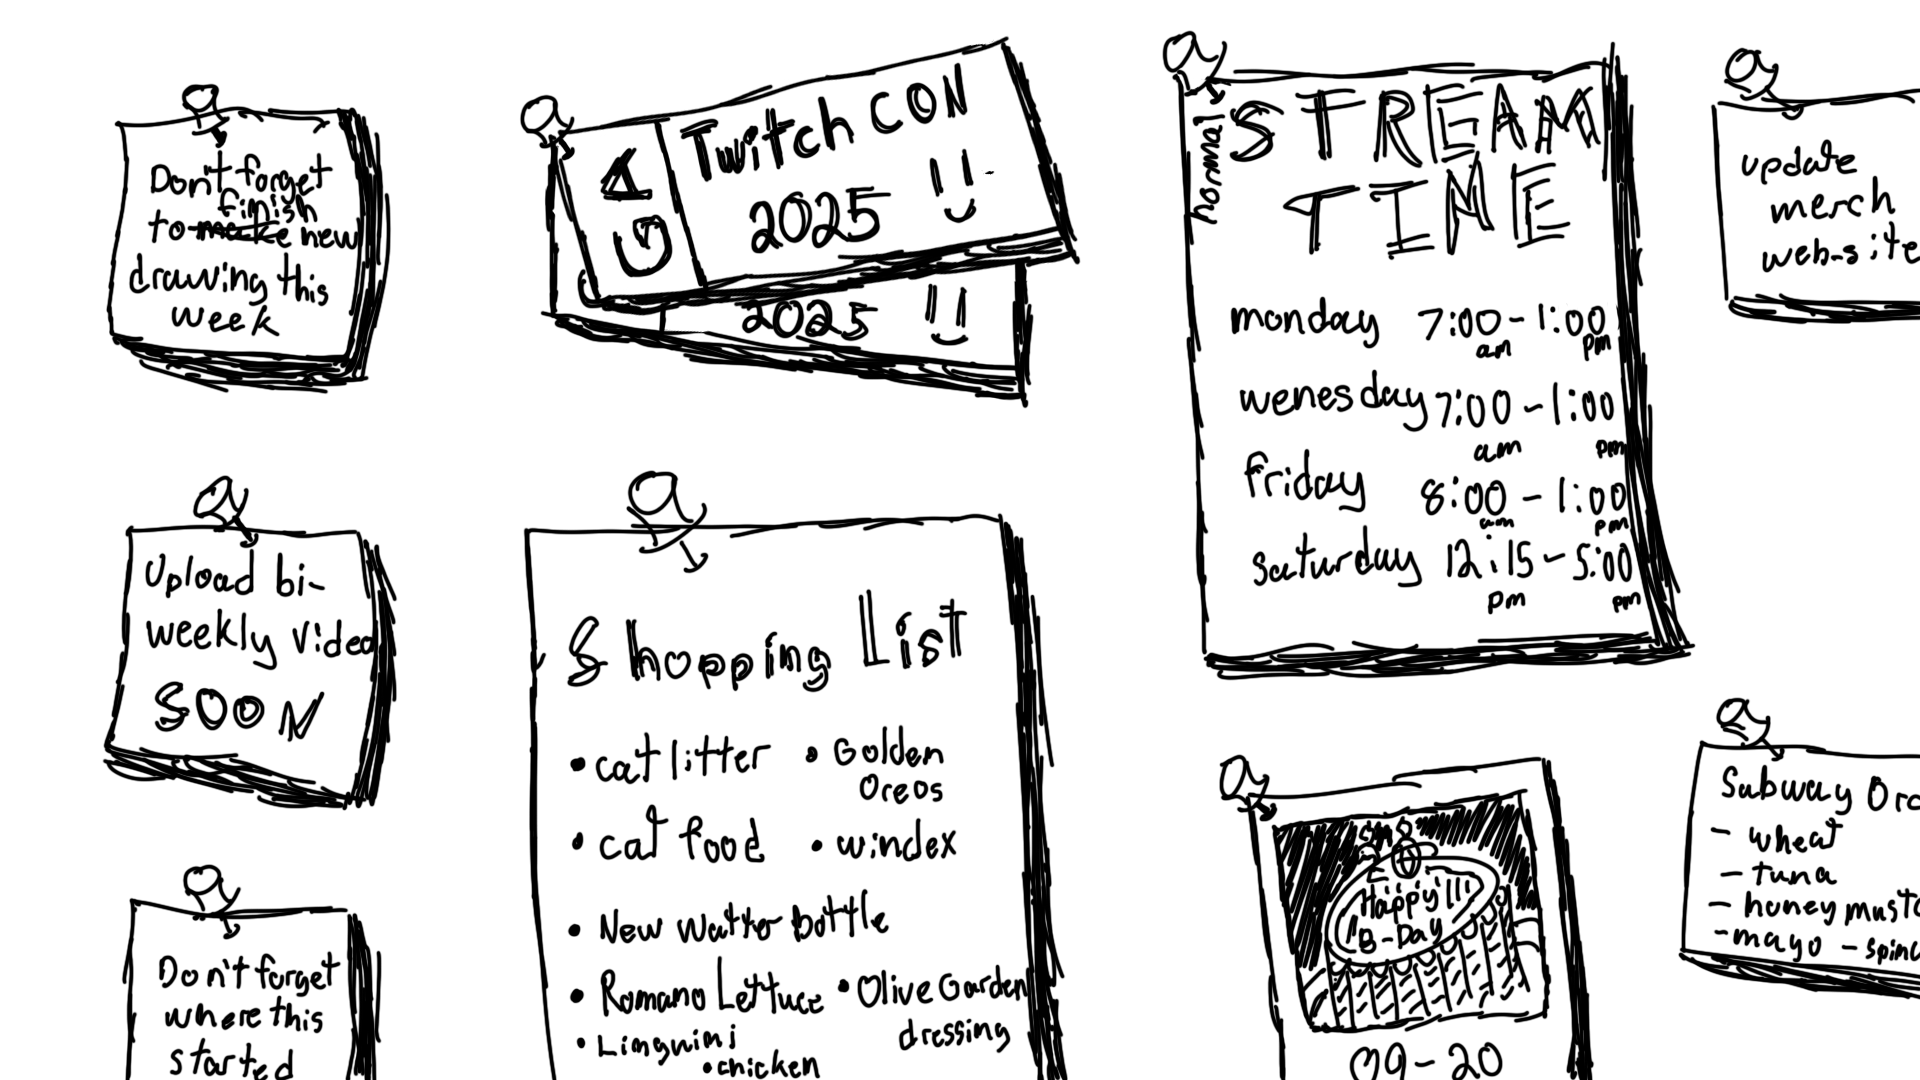 Don't forget
finish
to make new
drawing this
week
Twitch CON
2025 !!
2025 !!
normal
STREAM
TIME
monday 7:00 - 1:00
am pm
wenesday 7:00 - 1:00
am pm
friday 8:00 - 1:00
am pm
saturday 12:15 - 5:00
pm pm
update
merch
web-site
Upload bi-
weekly video
SOON
Shopping List
• cat litter • Golden
Oreos
• cat food • windex
• New Watter bottle
• Romano Lettuce • Olive Garden
dressing
• Linguini
• chicken
Happy!!!
B-Day
09-20
Subway Ord
- wheat
- tuna
- honey must
- mayo - spin
Don't forget
where this
started